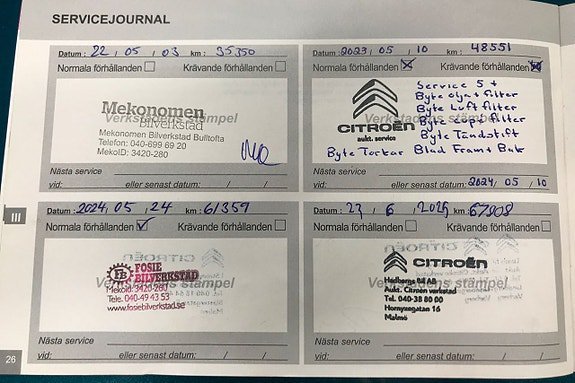 SERVICEJOURNAL
Datum : 22 , 05 , 03 km : 35350
Normala förhållanden Krävande förhållanden
Verkstadens stämpel
Mekonomen
Bilverkstad
Mekonomen Bilverkstad Bulltofta
Telefon: 040-699 69 20
MekoID: 3420-280
Nästa service
vid: eller senast datum: / /
Datum : 2023 , 05 , 10 km : 48551
Normala förhållanden Krävande förhållanden
Verkstadens stämpel
CITROËN
aukt. service
Service 5 +
Byte olja + filter
Byte Luft filter
Byte Kupé filter
Byte Tändstift
Byte Torkar Blad Fram + Bak
Nästa service
vid: eller senast datum: 2024 / 05 / 10
III
Datum : 2024 , 05 , 24 km : 61359
Normala förhållanden Krävande förhållanden
Verkstadens stämpel
FB FOSIE
BILVERKSTAD
MekoId: 3420-280
Tele. 040-49 43 53
www.fosiebilverkstad.se
Nästa service
vid: eller senast datum: / /
Datum : 23 , 6 , 2025 km : 67808
Normala förhållanden Krävande förhållanden
Verkstadens stämpel
CITROËN
Hedbergs Bil AB
Aukt. Citroën verkstad
Tel. 040-38 80 00
Hornyxegatan 16
Malmö
Nästa service
vid: eller senast datum: / /
26